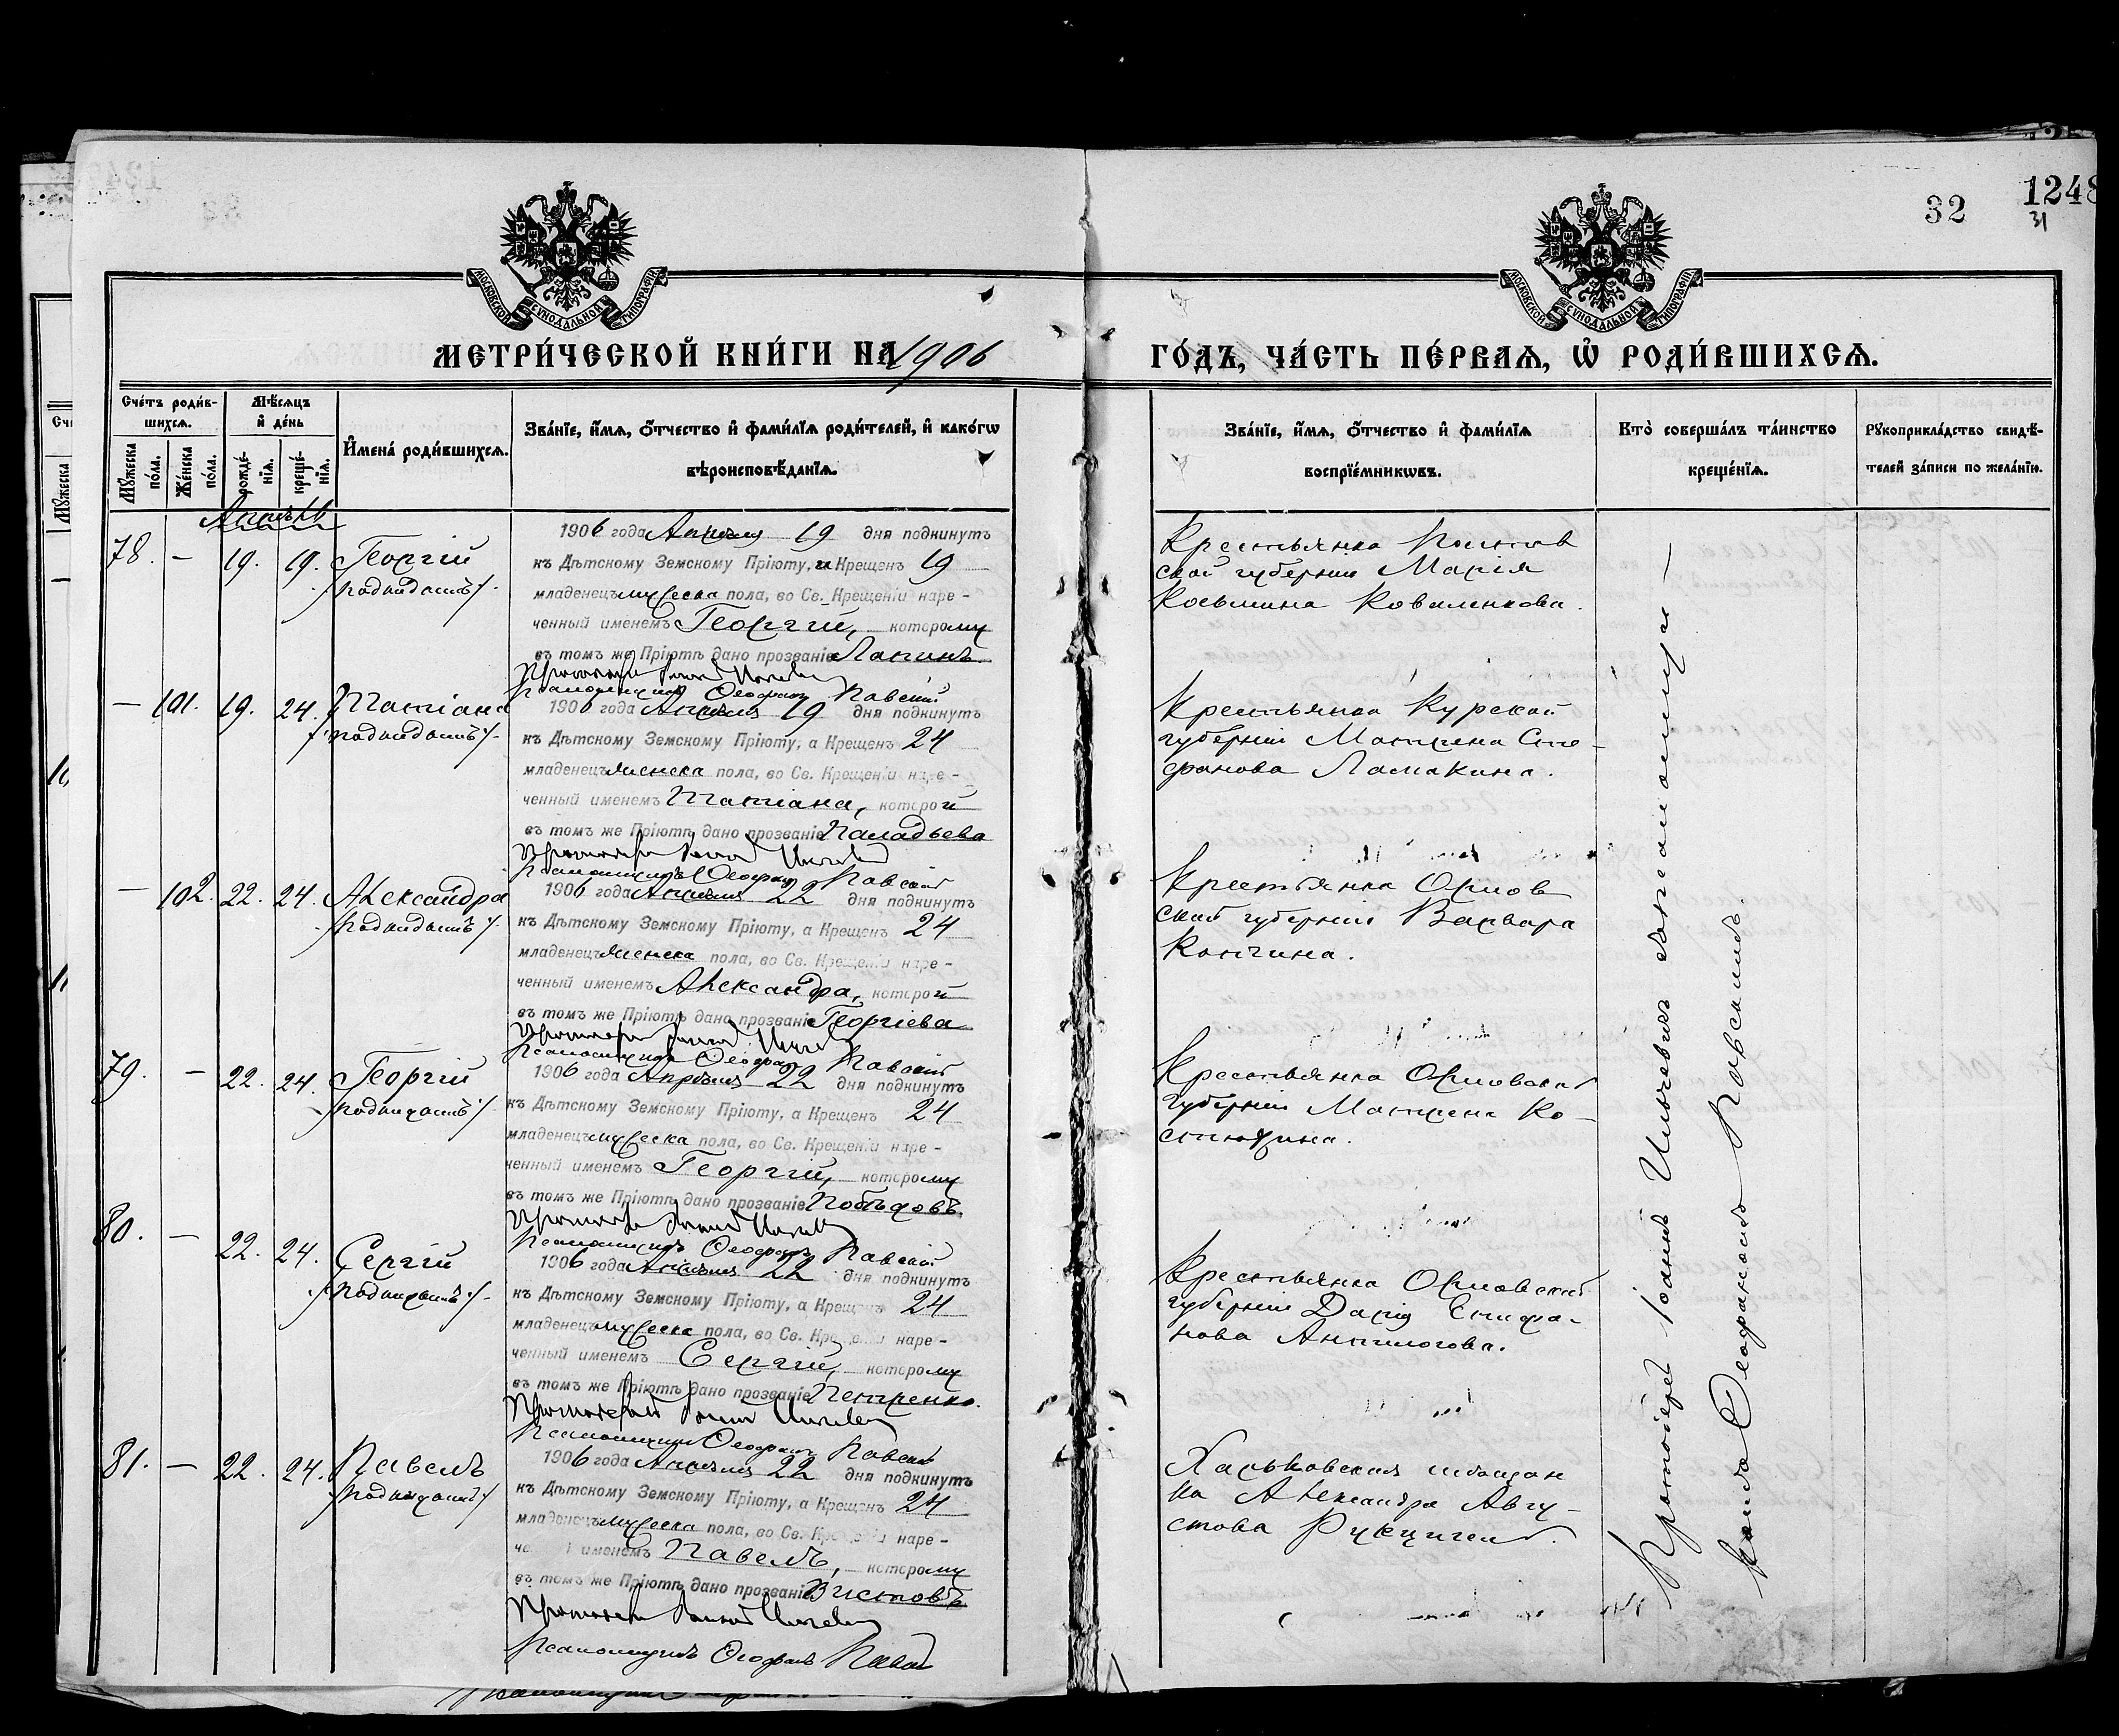 32
1248
31
МОСКОВСКОЙ СѴНОДАЛЬНОЙ ТИПОГРАФІИ
МОСКОВСКОЙ СѴНОДАЛЬНОЙ ТИПОГРАФІИ
МЕТРИ́ЧЕСКОЙ КНИ́ГИ НА 1906
ГО́ДЪ, ЧА́СТЬ ПЕ́РВАѦ, Ѡ҆ РОДИ́ВШИХСѦ.
Сче́тъ роди́в-
шихсѧ.
Мꙋ́жеска
по́ла.
Же́нска
по́ла.
Мѣ́сѧцъ
и҆ де́нь
рожде́-
нїѧ.
креще́-
нїѧ.
И҆мена̀ роди́вшихсѧ.
Зва́нїе, и҆́мѧ, ѻ҆́тчество и҆ фами́лїѧ роди́телей, и҆ како́гѡ
вѣроисповѣ́данїѧ.
Зва́нїе, и҆́мѧ, ѻ҆́тчество и҆ фами́лїѧ
воспрїе́мникѡвъ.
Кто̀ соверша́лъ та́инство
креще́нїѧ.
Рꙋкоприкла́дство свидѣ́-
телей за́писи по жела́нїю.
Апрѣль
78. — 19. 19. Георгій
/подкидышъ/.
1906 года Апрѣля 19 дня подкинутъ
къ Дѣтскому Земскому Пріюту, и Крещенъ 19
младенецъ мужеска пола, во Св. Крещеніи наре-
ченный именемъ Георгій, которому
въ томъ же Пріютѣ дано прозваніе Лапинъ
Протоіерей Іоаннъ
Псаломщикъ Ѳеофанъ Павскій
Крестьянка Полтав
ской губерніи Марія
Косьмина Коваленкова.
— 101. 19. 24. Татіана
/подкидышъ/.
1906 года Апрѣля 19 дня подкинутъ
къ Дѣтскому Земскому Пріюту, а Крещенъ 24
младенецъ женска пола, во Св. Крещеніи наре-
ченный именемъ Татіана, которой
въ томъ же Пріютѣ дано прозваніе Паладьева
Протоіерей Іоаннъ
Псаломщикъ Ѳеофанъ Павскій
Крестьянка Курской
губерніи Матрена Сте-
фанова Ламакина.
— 102. 22. 24. Александра
/подкидышъ/.
1906 года Апрѣля 22 дня подкинутъ
къ Дѣтскому Земскому Пріюту, а Крещенъ 24
младенецъ женска пола, во Св. Крещеніи наре-
ченный именемъ Александра, которой
въ томъ же Пріютѣ дано прозваніе Георгіева
Протоіерей Іоаннъ
Псаломщикъ Ѳеофанъ Павскій
Крестьянка Орлов
ской губерніи Варвара
Копчина.
79. — 22. 24. Георгій
/подкидышъ/.
1906 года Апрѣля 22 дня подкинутъ
къ Дѣтскому Земскому Пріюту, а Крещенъ 24
младенецъ мужеска пола, во Св. Крещеніи наре-
ченный именемъ Георгій, которому
въ томъ же Пріютѣ дано прозваніе Побѣдовъ.
Протоіерей Іоаннъ
Псаломщикъ Ѳеофанъ Павскій
Крестьянка Орловской
губерніи Матрена Ко-
стюхина.
80. — 22. 24. Сергій
/подкидышъ/.
1906 года Апрѣля 22 дня подкинутъ
къ Дѣтскому Земскому Пріюту, а Крещенъ 24
младенецъ мужеска пола, во Св. Крещеніи наре-
ченный именемъ Сергій, которому
въ томъ же Пріютѣ дано прозваніе Петренко.
Протоіерей Іоаннъ
Псаломщикъ Ѳеофанъ Павскій
Крестьянка Орловской
губерніи Дарія Епифа-
нова Анпилогова.
81. — 22. 24. Павелъ
/подкидышъ/
1906 года Апрѣля 22 дня подкинутъ
къ Дѣтскому Земскому Пріюту, а Крещенъ 24
младенецъ мужеска пола, во Св. Крещеніи наре-
именемъ Павелъ, которому
въ томъ же Пріютѣ дано прозваніе Вистовъ
Протоіерей Іоаннъ
Псаломщикъ Ѳеофанъ Павскій
Харьковская мѣщан
ка Александра Авгу-
стова
Протоіерей Іоаннъ съ псаломщи-
комъ Ѳеофаномъ Павскимъ.